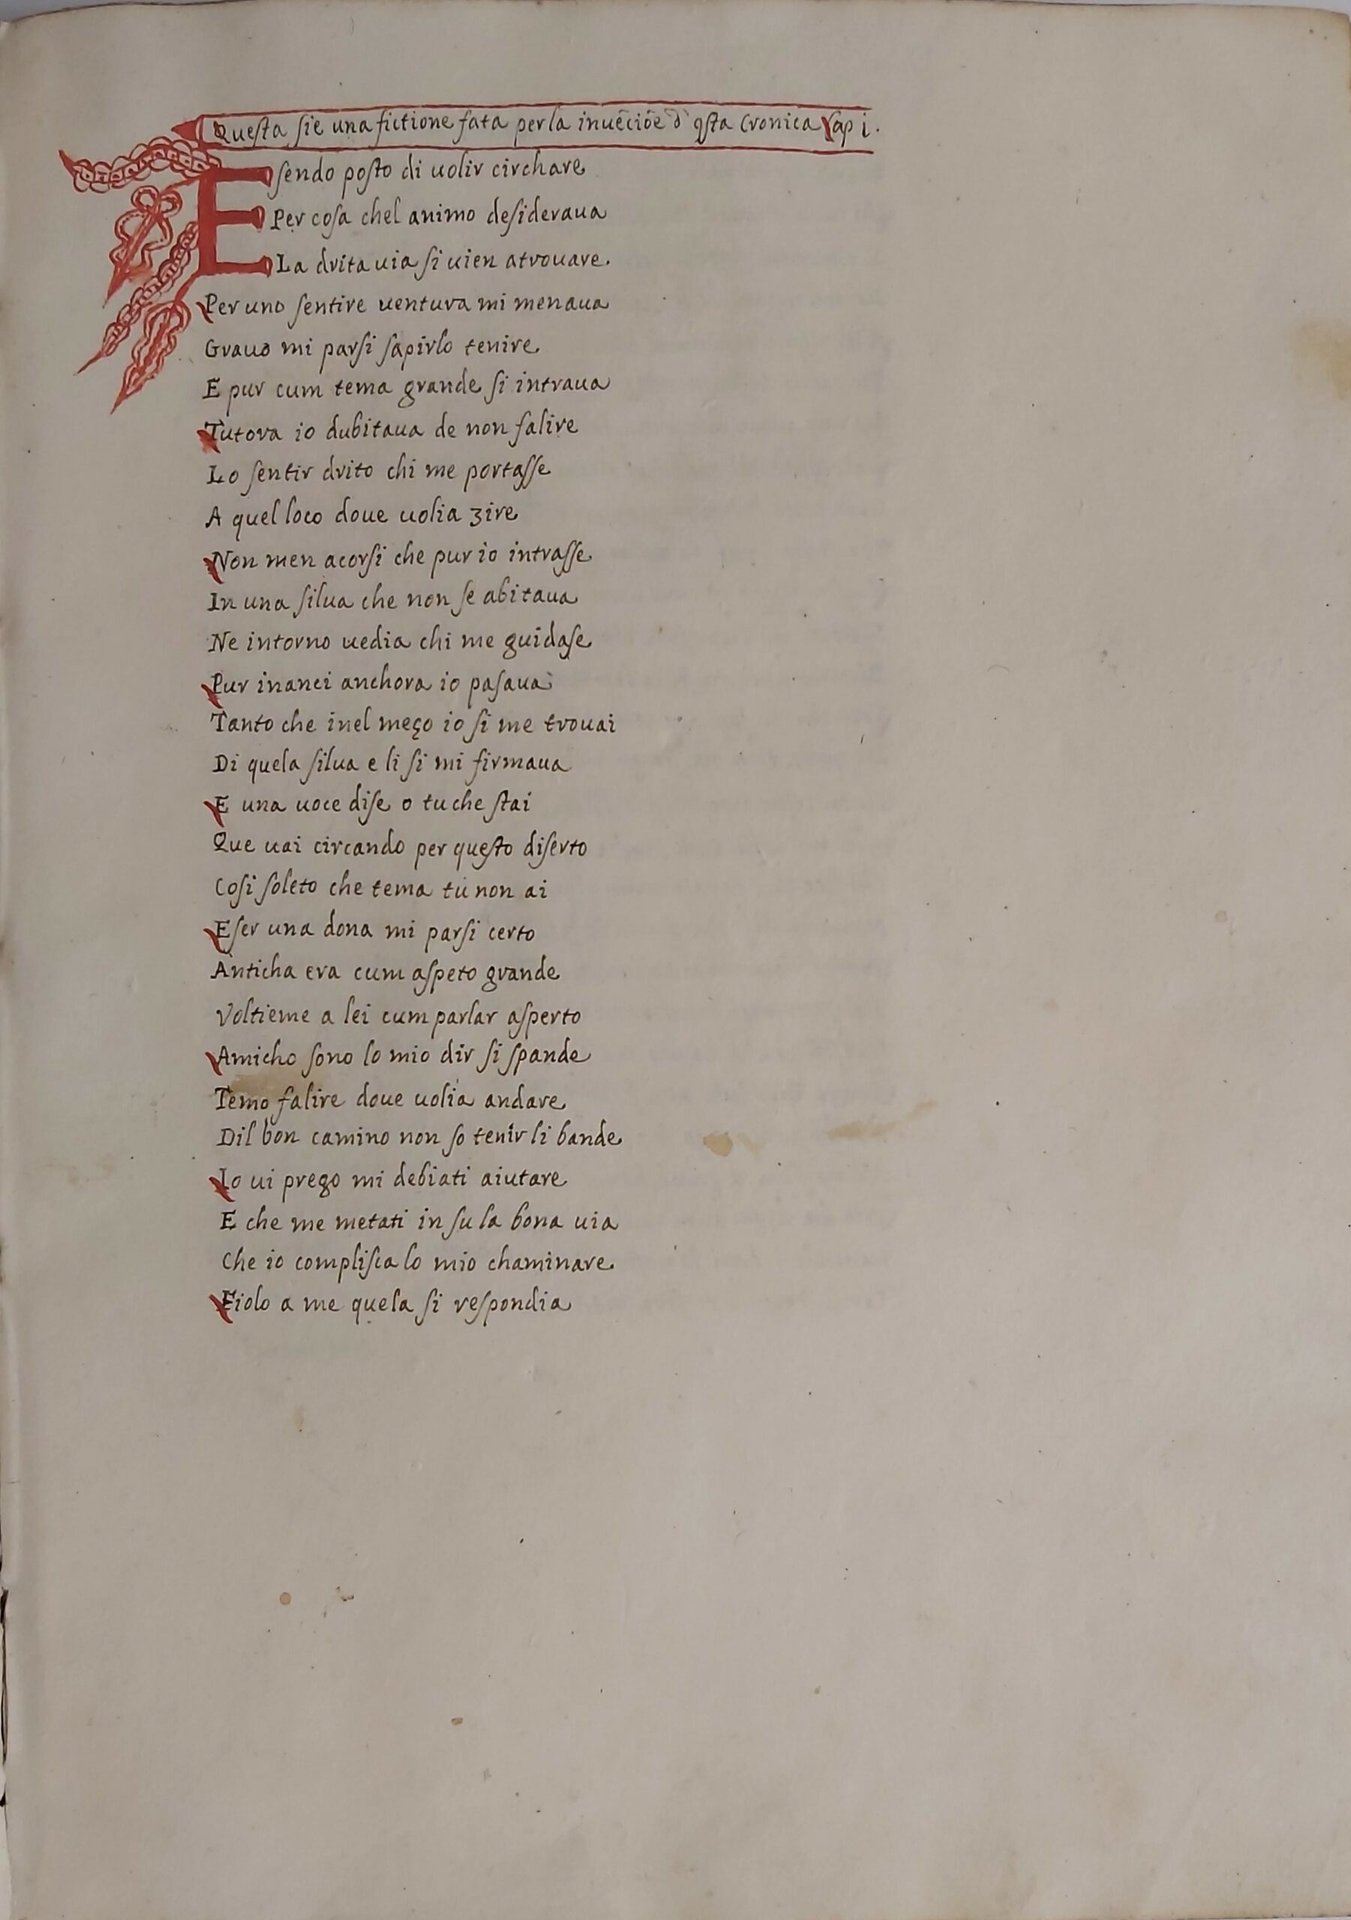 Questa sie una fictione fata per la inuēciōe d qsta Cronica Cap i.
Esendo posto di uolir circhare
Per cosa chel animo desideraua
La drita uia si uien atrouare.
Per uno sentire uentura mi menaua
Grauo mi parsi sapirlo tenire
E pur cum tema grande si intraua
Tutora io dubitaua de non falire
Lo sentir drito chi me portasse
A quel loco doue uolia zire
Non men acorsi che pur io intrasse
In una silua che non se abitaua
Ne intorno uedia chi me guidase
Pur inanci anchora io pasaua
Tanto che inel meço io si me trouai
Di quela silua e li si mi firmaua
E una uoce dise o tu che stai
Que uai circando per questo diserto
Cosi soleto che tema tu non ai
Eser una dona mi parsi certo
Anticha era cum aspeto grande
Voltieme a lei cum parlar asperto
Amicho sono lo mio dir si spande
Temo falire doue uolia andare
Dil bon camino non so tenir li bande
Io ui prego mi debiati aiutare
E che me metati in su la bona uia
Che io complisca lo mio chaminare
Fiolo a me quela si respondia